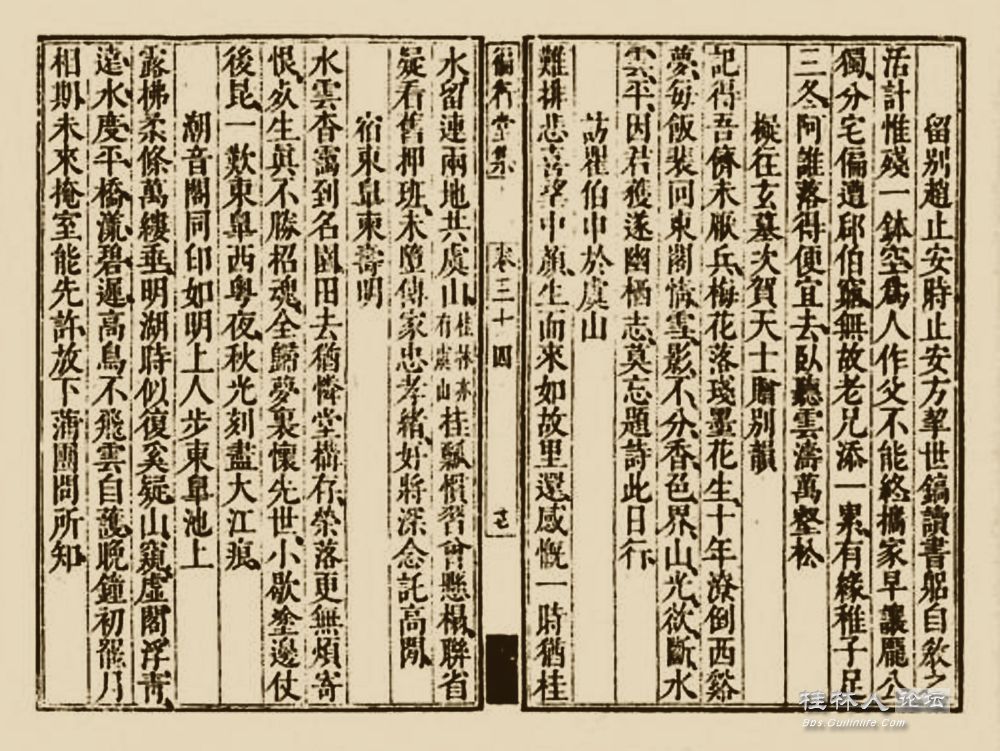 留別趙止安時止安方挈世鎬讀書躬自欸之
活計惟殘一鉢空爲人作父不能終攜家早讓龎公
獨分宅偏遭邱伯窮無故老兄添一累有緣稚子足
三冬阿誰落得便宜去臥聽雲濤萬壑松
擬在玄墓次賀天士贈別韻
記得吾儕未厭兵梅花落後墨花生十年潦倒西谿
夢每飯裴回東閣情雪影不分香色界山光欲斷水
雲平因君獲遂幽栖志莫忘題詩此日行
訪瞿伯申於虞山
難排悲喜望中顏生而來如故里還感慨一時猶桂
徧行堂集
卷三十四
水留連兩地共虞山桂林亦有虞山桂瓢慣習曾懸榻聯省
疑看舊押班未墮傳家忠孝緒好將深念託高閒
宿東皐柬壽明
水雲杳靄到名園田去猶憐堂構存榮落更無煩寄
恨友生眞不勝招魂全歸夢裏懷先世小歇塗邊仗
後昆一歎東皐西粤夜秋光刻盡大江痕
潮音閣同印如明上人步東皐池上
露拂柔條萬縷垂明湖時似復奚疑山窺虛閣浮青
遠水度平橋漾碧遲高鳥不飛雲自護晚鐘初罷月
相期未來掩室能先許放下蒲團問所知
桂林人论坛
Bbs.Guilinlife.Com